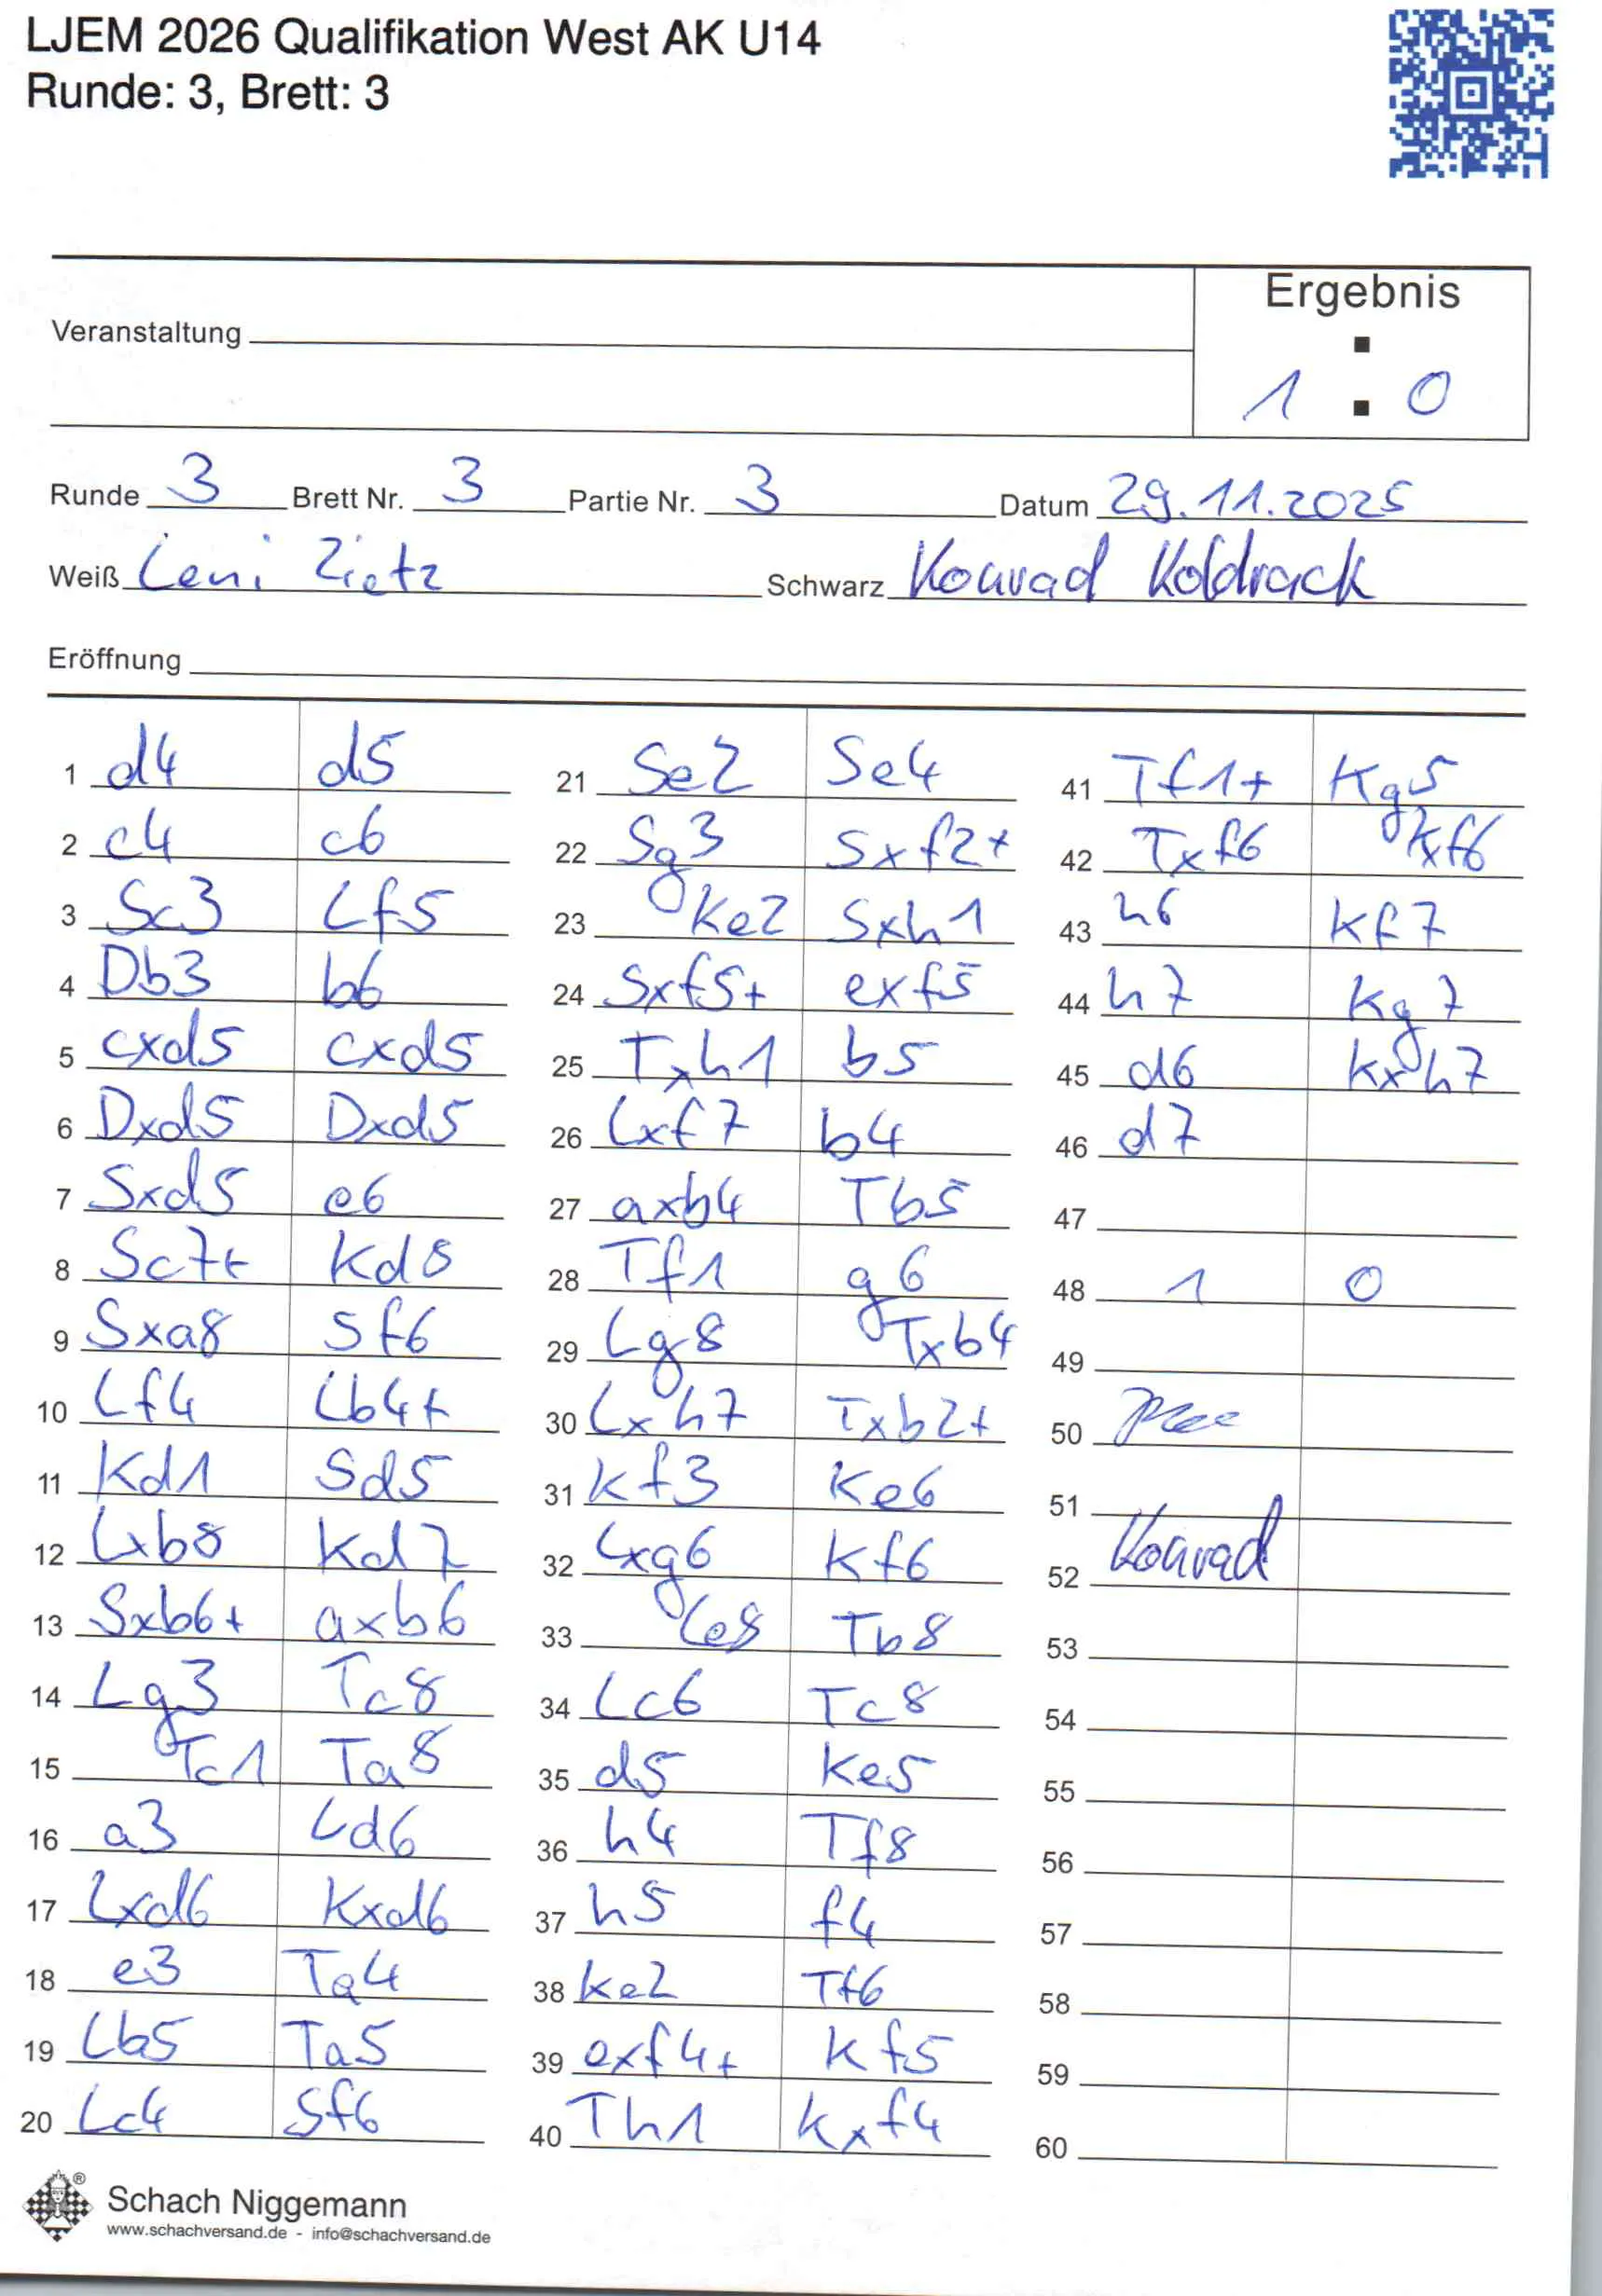 LJEM 2026 Qualifikation West AK U14
Runde: 3, Brett: 3
Ergebnis
Veranstaltung
1 : 0
Runde 3 Brett Nr. 3 Partie Nr. 3 Datum 29.11.2025
Weiß Leni Zietz Schwarz Konrad Koldrack
Eröffnung
1 d4 d5
2 c4 c6
3 Sc3 Lf5
4 Db3 b6
5 cxd5 cxd5
6 Dxd5 Dxd5
7 Sxd5 e6
8 Sc7+ Kd8
9 Sxa8 Sf6
10 Lf4 Lb4+
11 Kd1 Sd5
12 Lxb8 Kd7
13 Sxb6+ axb6
14 Lg3 Tc8
15 Tc1 Ta8
16 a3 Ld6
17 Lxd6 Kxd6
18 e3 Ta4
19 Lb5 Ta5
20 Lc4 Sf6
21 Se2 Se4
22 Sg3 Sxf2+
23 Ke2 Sxh1
24 Sxf5+ exf5
25 Txh1 b5
26 Lxf7 b4
27 axb4 Tb5
28 Tf1 g6
29 Lg8 Txb4
30 Lxh7 Txb2+
31 Kf3 Ke6
32 Lxg6 Kf6
33 Le8 Tb8
34 Lc6 Tc8
35 d5 Ke5
36 h4 Tf8
37 h5 f4
38 Ke2 Tf6
39 exf4+ Kf5
40 Th1 Kxf4
41 Tf1+ Kg5
42 Txf6 Kxf6
43 h6 Kf7
44 h7 Kg7
45 d6 Kxh7
46 d7
47
48 1 0
49
50
51
52 Konrad
53
54
55
56
57
58
59
60
®
Schach Niggemann
www.schachversand.de - info@schachversand.de